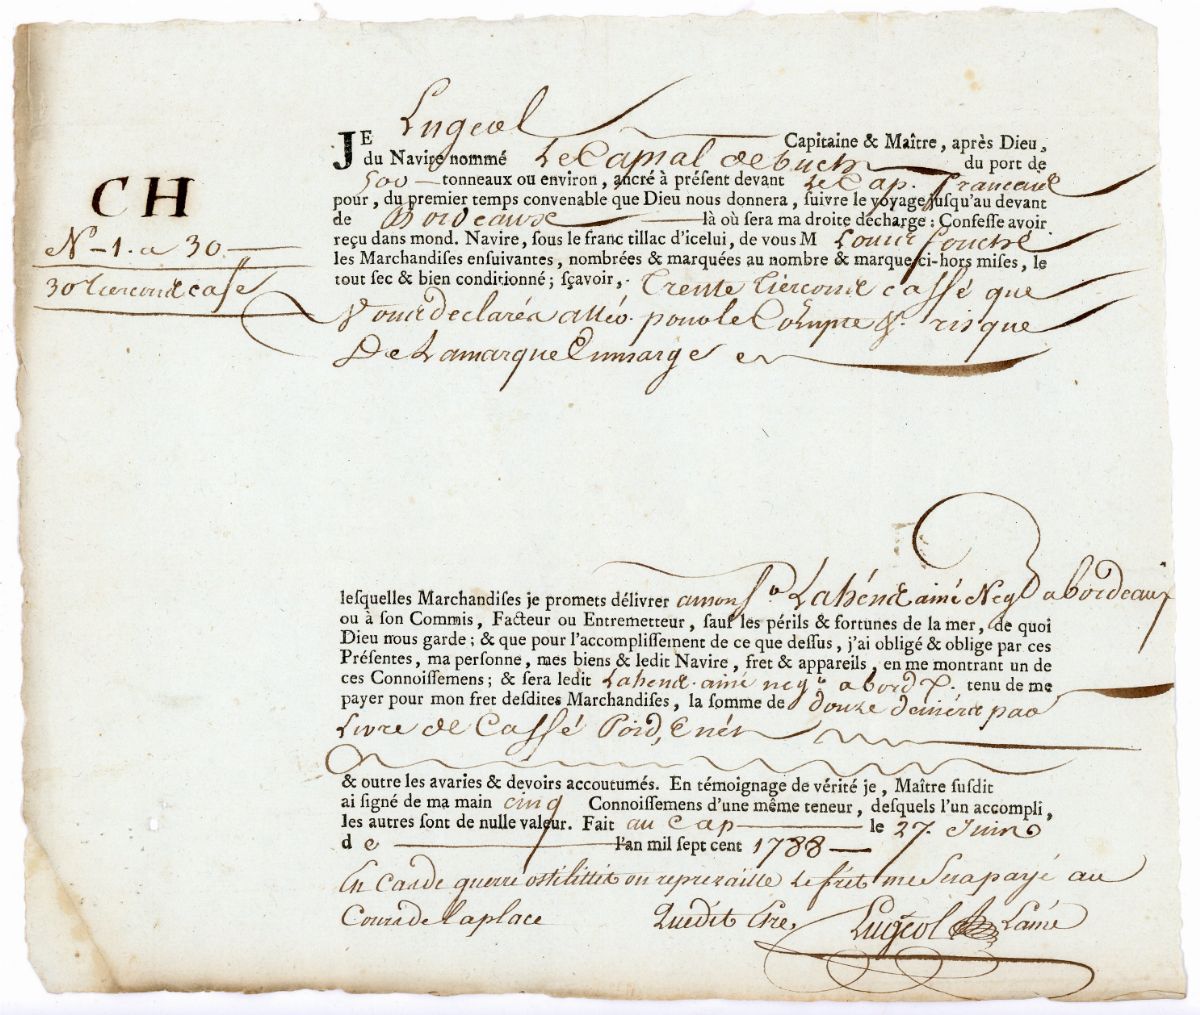 CH
N° 1. a 30
30 tiercond casé
JE Lugeol Capitaine & Maître, après Dieu,
du Navire nommé Le Captal de buch du port de
500 tonneaux ou environ, ancré à présent devant Le Cap. francais
pour, du premier temps convenable que Dieu nous donnera, suivre le voyage jusqu'au devant
de Bordeaux là où sera ma droite décharge : Confesse avoir
reçu dans mond. Navire, sous le franc tillac d'icelui, de vous M Louis fouché
les Marchandises ensuivantes, nombrées & marquées au nombre & marque ci-hors mises, le
tout sec & bien conditionné ; sçavoir, Trente tiercond caffé que
Vous declarés pour le Compte & risque
De Lamarque Enmarge
lesquelles Marchandises je promets délivrer amonsr. Lahend ainé Negt a bordeaux
ou à son Commis, Facteur ou Entremetteur, sauf les périls & fortunes de la mer, de quoi
Dieu nous garde ; & que pour l'accomplissement de ce que dessus, j'ai obligé & oblige par ces
Présentes, ma personne, mes biens & ledit Navire, fret & appareils, en me montrant un de
ces Connoissemens ; & sera ledit Lahend ainé negt a bordx. tenu de me
payer pour mon fret desdites Marchandises, la somme de douze deniers par
Livre de Caffé Poid, Enet
& outre les avaries & devoirs accoutumés. En témoignage de vérité je, Maître susdit
ai signé de ma main cinq Connoissemens d'une même teneur, desquels l'un accompli,
les autres sont de nulle valeur. Fait au Cap le 27. Juin
de l'an mil sept cent 1788
En Cas de guerre ostilittit ou reprezaille Le fret me Sera payé au
Cours de la place Quedit Etre, Lugeol Lainé